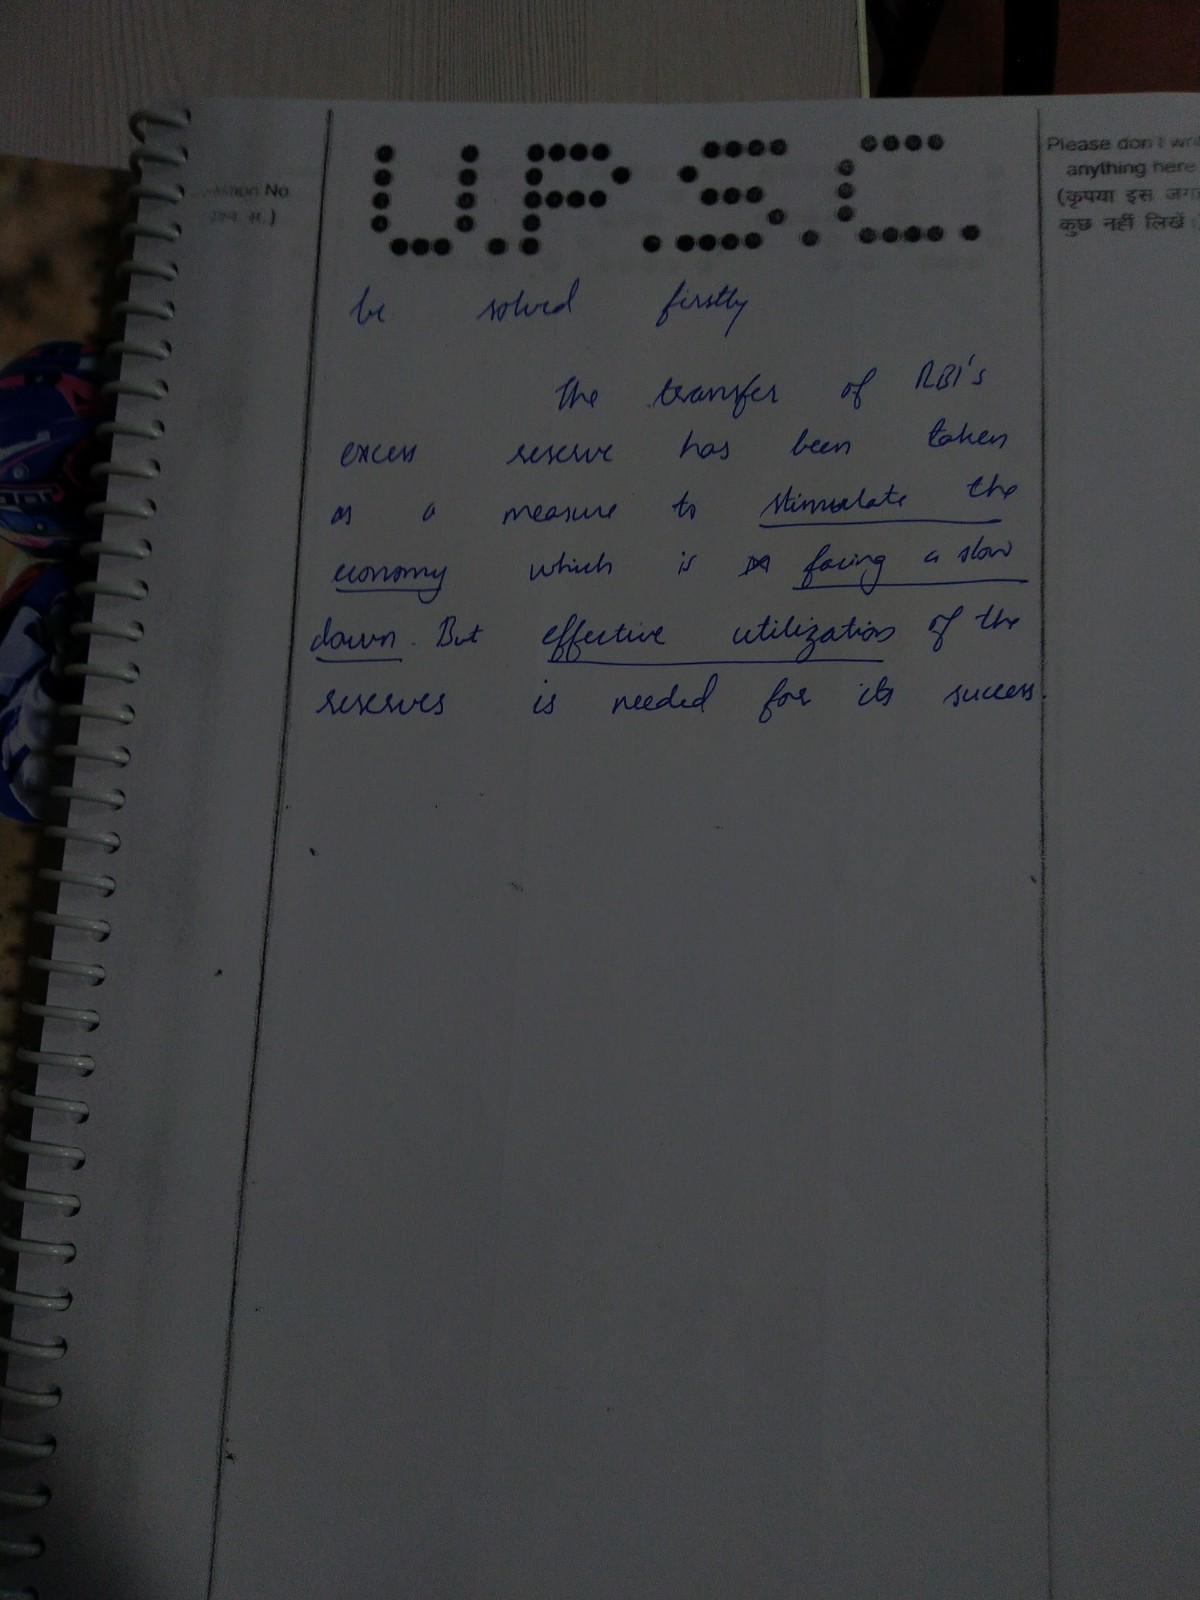 U.P.S.C.
Question No.
Please don't
anything here
(कृपया इस
कुछ नहीं लिखें
be solved firstly
The transfer of RBI's
excess reserve has been taken
as a measure to stimulate the
economy which is facing a slow
down. But effective utilization of the
reserves is needed for its success.